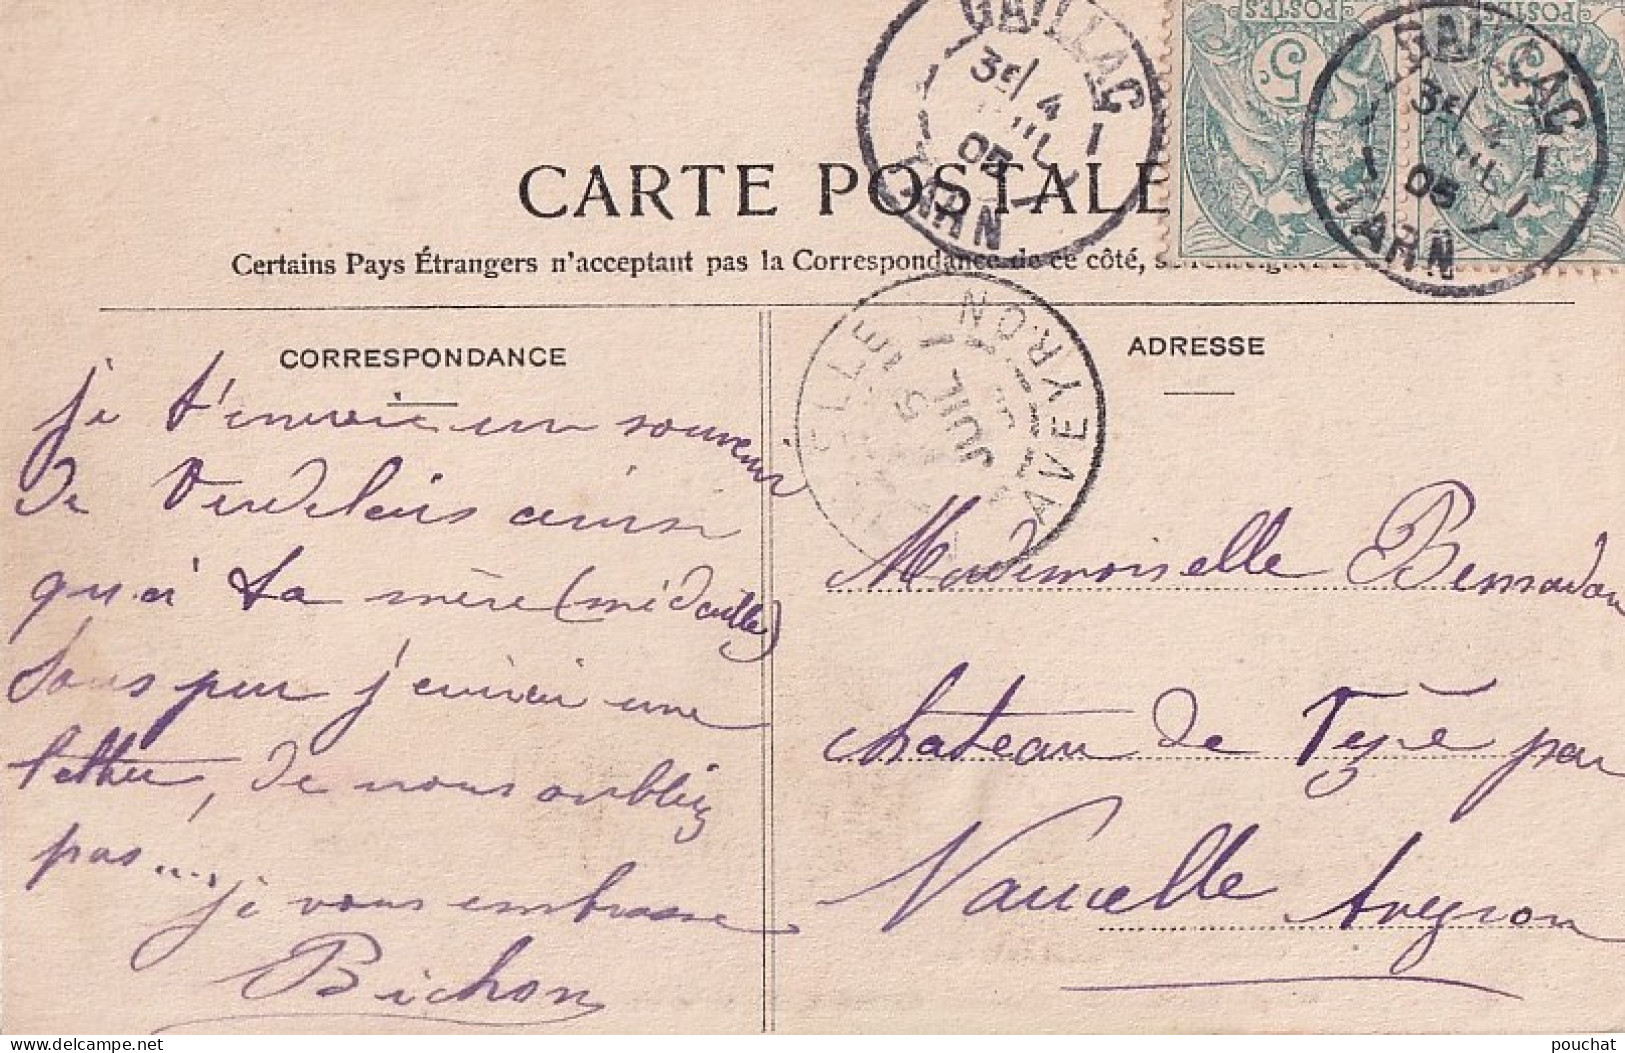 CARTE POSTALE
Certains Pays Étrangers n'acceptant pas la Correspondance de ce côté,
CORRESPONDANCE
je t'envoie un souvenir
de Verdelais ainsi
qu'à ta mère (médaille)
Sous peu j'enverai une
lettre, de nous oubliez
pas....
je vous embrasse
Bichon
ADRESSE
Mademoiselle
chateau de par
Naucelle Aveyron
GAILLAC
3E/ 4
JUIL
05
TARN
POSTES
5c
POSTES
5c
GAILLAC
3E/ 4
JUIL
05
TARN
AVEYRON
5
JUIL
pouchat